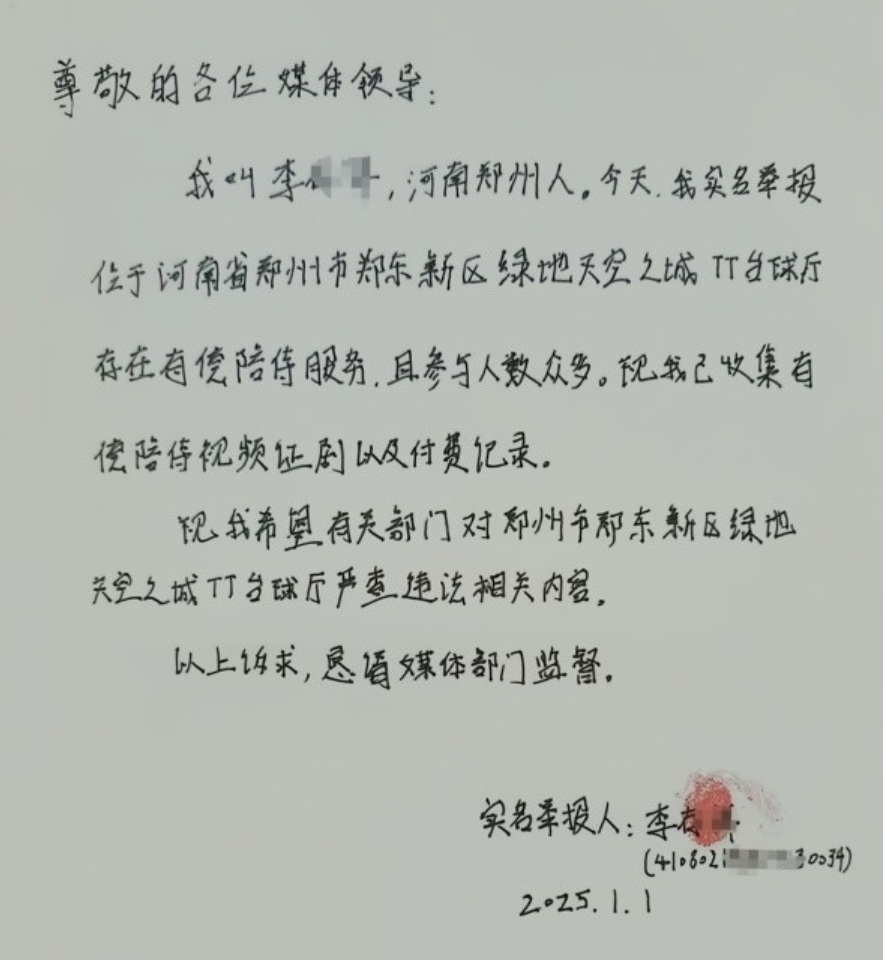 尊敬的各位媒体领导：
我叫李，河南郑州人。今天，我实名举报
位于河南省郑州市郑东新区绿地天空之城TT台球厅
存在有偿陪侍服务，且参与人数众多。现我已收集有
偿陪侍视频证剧以及付费记录。
现我希望有关部门对郑州市郑东新区绿地
天空之城TT台球厅严查违法相关内容。
以上诉求，恳请媒体部门监督。
实名举报人：李
(410802 30034)
2025.1.1